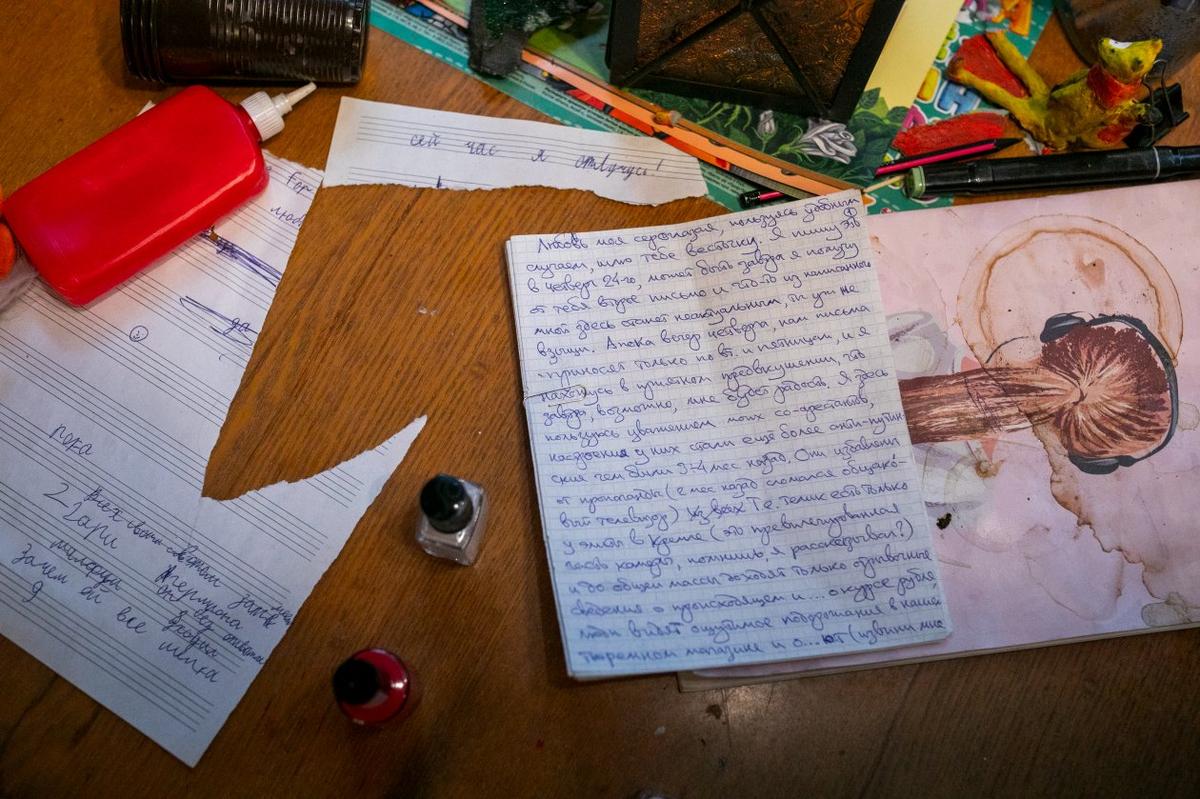 сей час я отвлучусь!
люб
да
пока
2
Гари
Зачем ей все
Я
шепка
Любовь моя сероглазая, пользуясь удобным
случаем, шлю тебе весточку. Я пишу это
в четверг 24-го, может быть завтра я получу
от тебя второе письмо и что-то из написанного
мной здесь станет неактуальным, ты уж не
взыщи. А пока вечер четверга, нам письма
приносят только по вт. и пятницам, и я
нахожусь в приятном предвкушении, что
завтра, возможно, мне будет радость. Я здесь
пользуюсь уважением моих со-арестантов,
настроения у них стали ещё более анти-путин-
ские чем были 3-4 мес назад. Они избавлены
от пропаганды (2 мес назад сломался общако-
вый телевизор) Из всех Т.е. телик есть только
у элиты в Кремле (это привилегированная
часть камеры, помнишь, я рассказывал?)
и до общей массы доходят только отрывочные
сведения о происходящем и... о курсе рубля
люди видят ощутимое подорожание в нашем
тюремном магазине и о...ют (извини мне